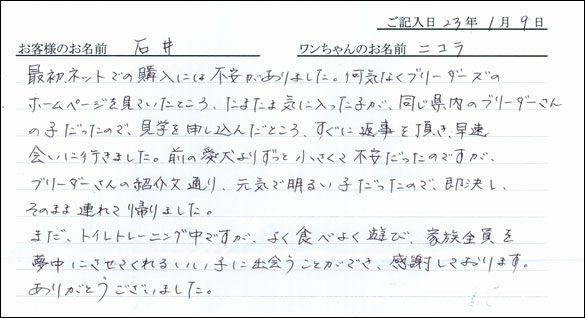 ご記入日 23年 1月 9日
お客様のお名前 石井 ワンちゃんのお名前 ニコラ
最初ネットでの購入には不安がありました。何気なくブリーダーズの
ホームページを見ていたところ、たまたま気に入った子が、同じ県内のブリーダーさん
の子だったので、見学を申し込んだところ、すぐに返事を頂き、早速
会いに行きました。前の愛犬よりずっと小さくて不安だったのですが、
ブリーダーさんの紹介文通り、元気で明るい子だったので、即決し、
そのまま連れて帰りました。
まだ、トイレトレーニング中ですが、よく食べよく遊び、家族全員を
夢中にさせてくれるいい子に出会うことができ、感謝しております。
ありがとうございました。